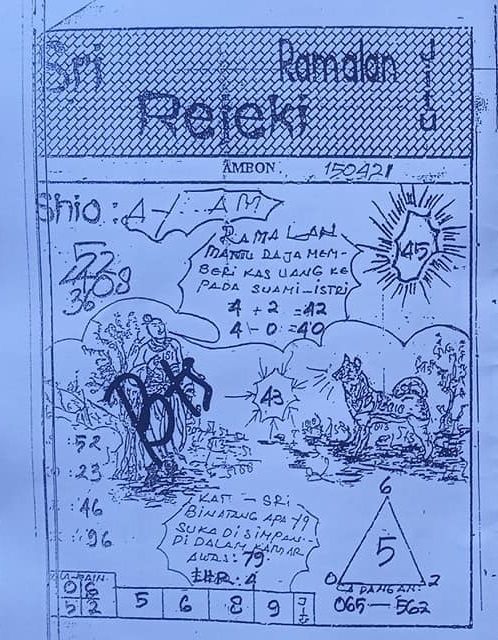 Sri
Ramalan
Jitu
Rejeki
AMBON 150421
Shio : A-/- AM
RAMALAN
MANTU RAJA MEM-
BERI KAS UANG KE
PADA SUAMI_ISTRI
4 + 2 = 42
4 - 0 = 40
45
36
43
: 52
: 23
: 46
: 96
KAT - SRI
BINATANG APA YG
SUKA DI SIMPAN-
DI DALAM KAMAR
AWAS: 79
EKR. 4
6
5
0 2
CADANGAN:
065 — 562
5 6 8 9 JITU